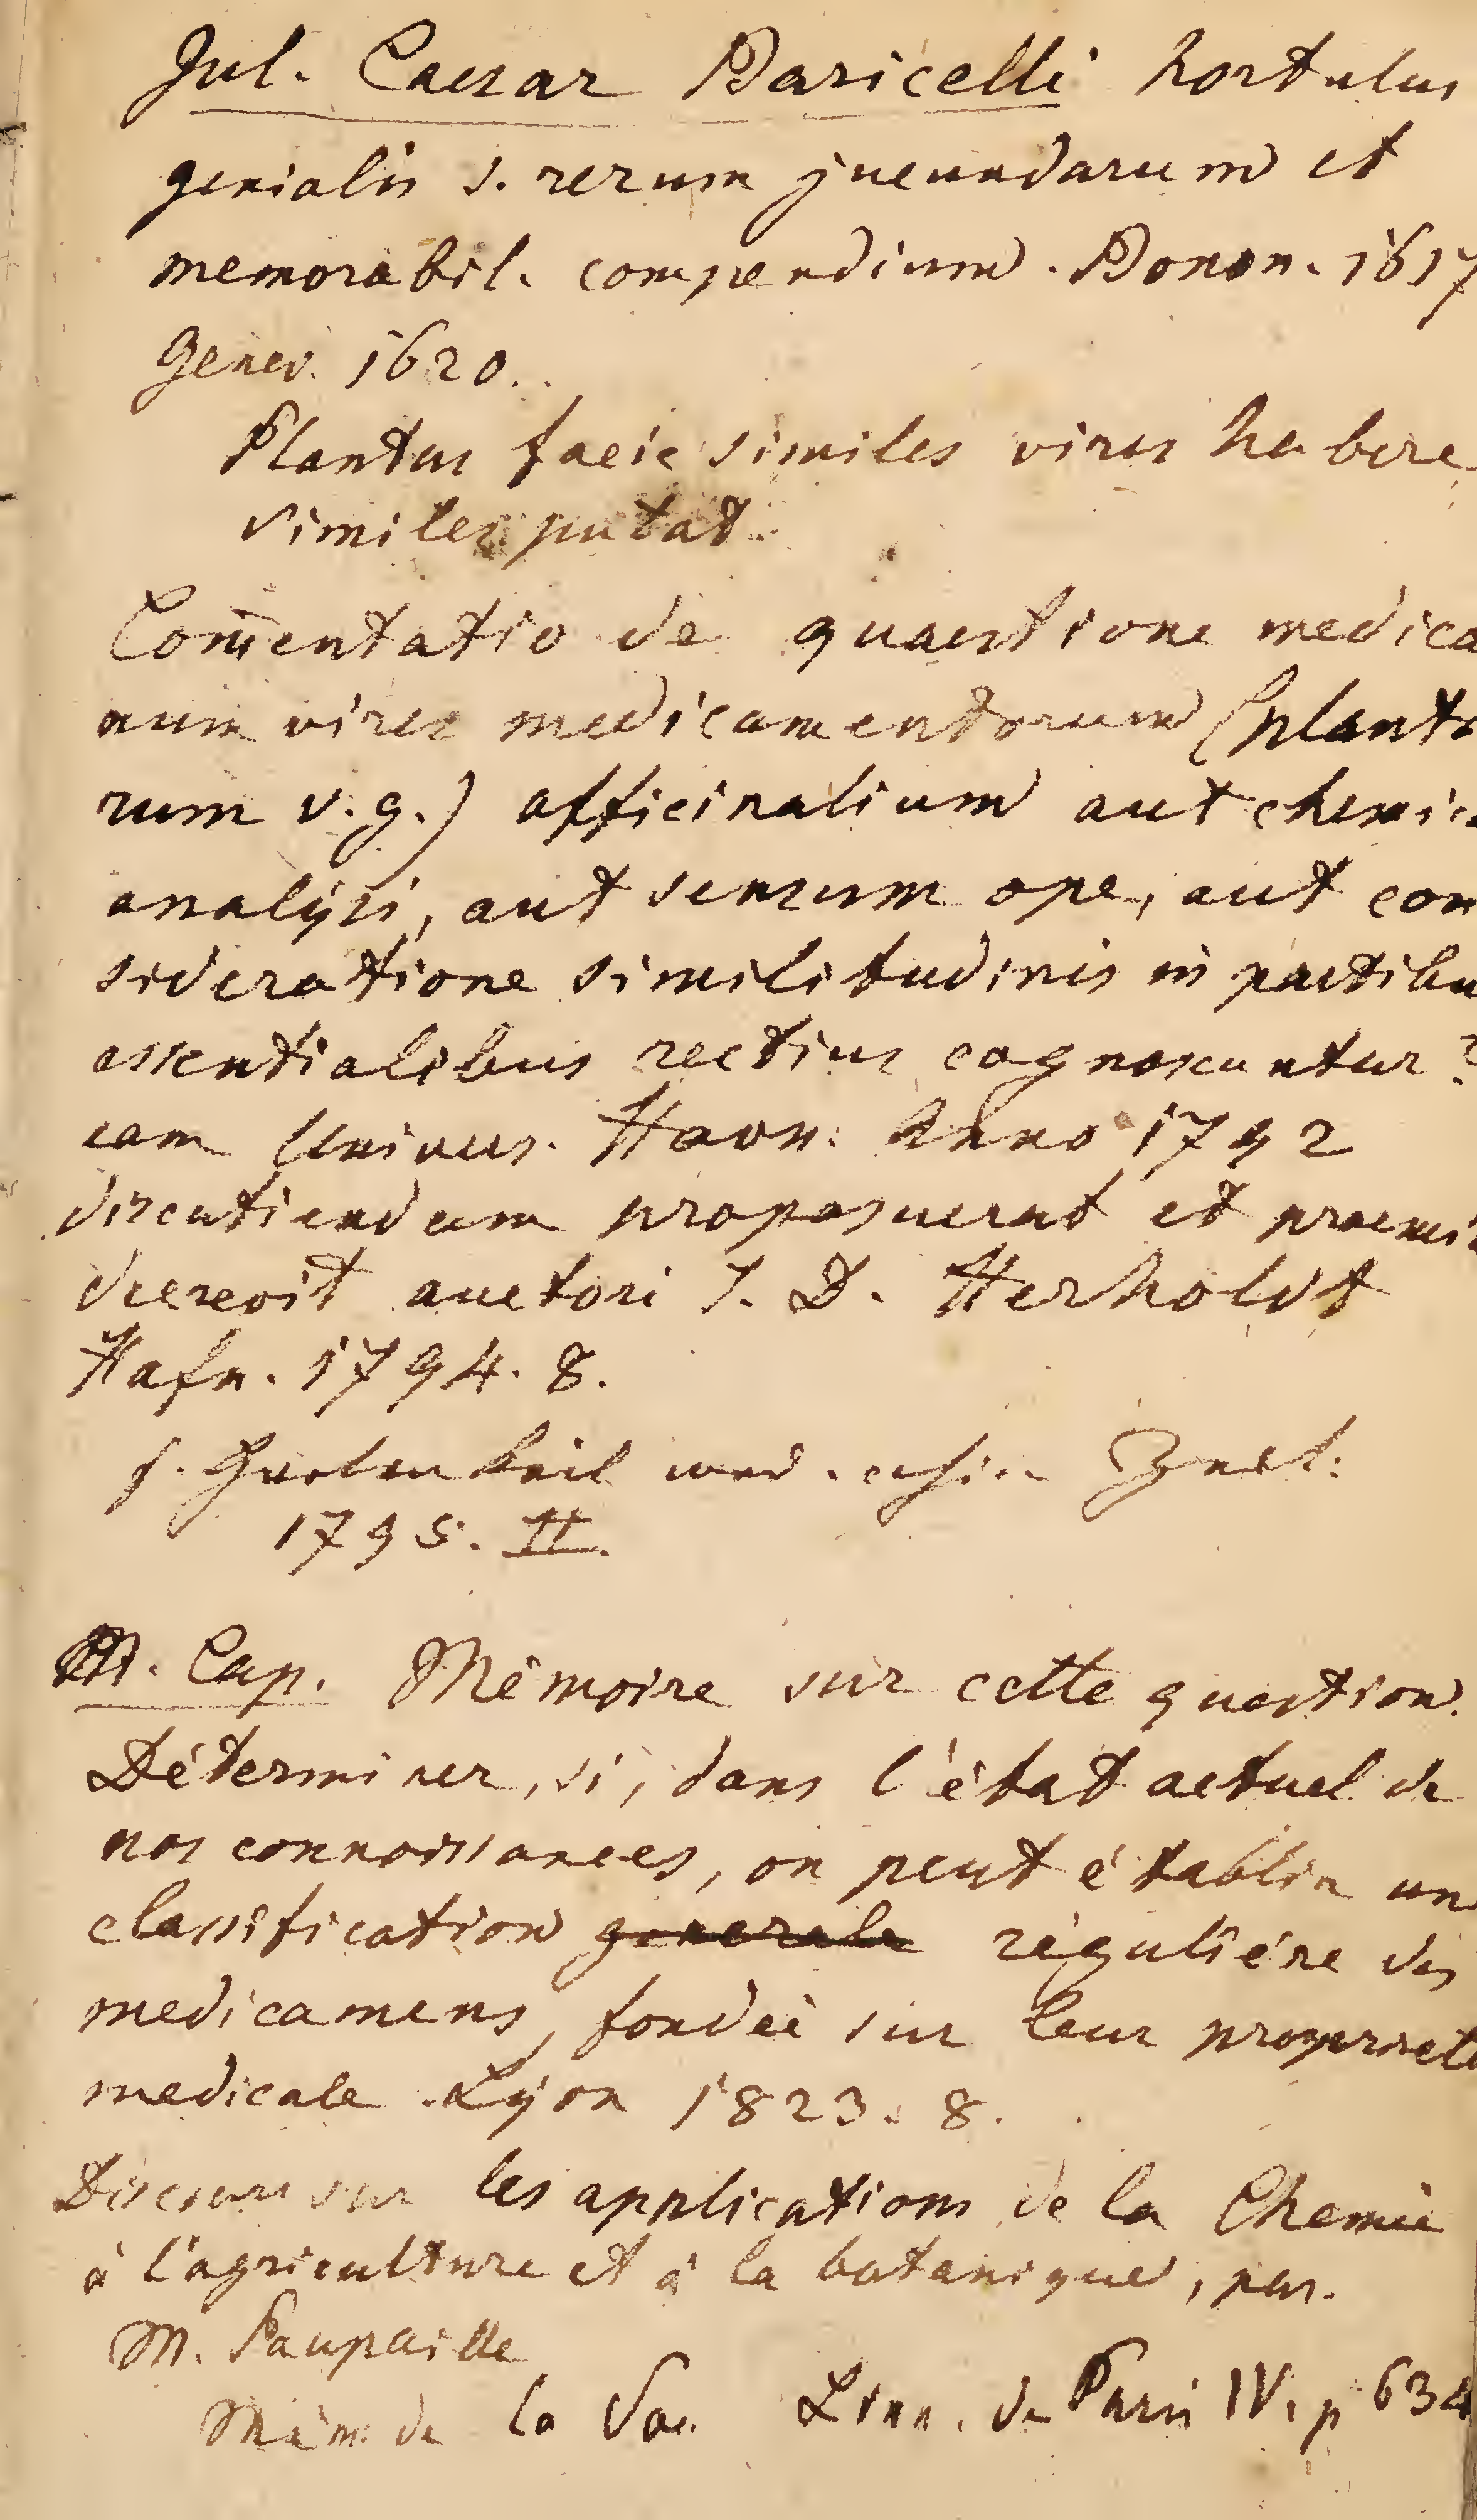 Jul. Caesar Baricelli hortulus
genialis s. rerum jucundarum et
memorabil. compendium. Bonon. 1617
Genev. 1620.
Plantas facie similes vires habere
similes putat.
Com̄entatio de quaestione medica
num vires medicamentorum (planta
rum v. g.) officinalium aut chemica
analÿsi, aut sensum ope, aut con
sideratione similitudinis in partibus
essentialibus rectius cognoscuntur?
eam Univers. Havn: Anno 1792
discutiendam proposuerat et praemi
decrevit auctori J. D. Herholdt
Hafn. 1794. 8.
s. med. Zeit:
1795. II.
M. Cap. Mêmoire sur cette question.
Déterminer, si, dans l'état actuel de
nos connoissances, on peut établir un
classification generale régulière des
medicamens, fondée sur leur propriete
medicale. Lÿon 1823. 8.
Discours sur les applications de la Chemie
à l'agriculture et à la botanique, par.
M. Paupaille
Mém: de la Soc. Linn. de Paris IV. p 634